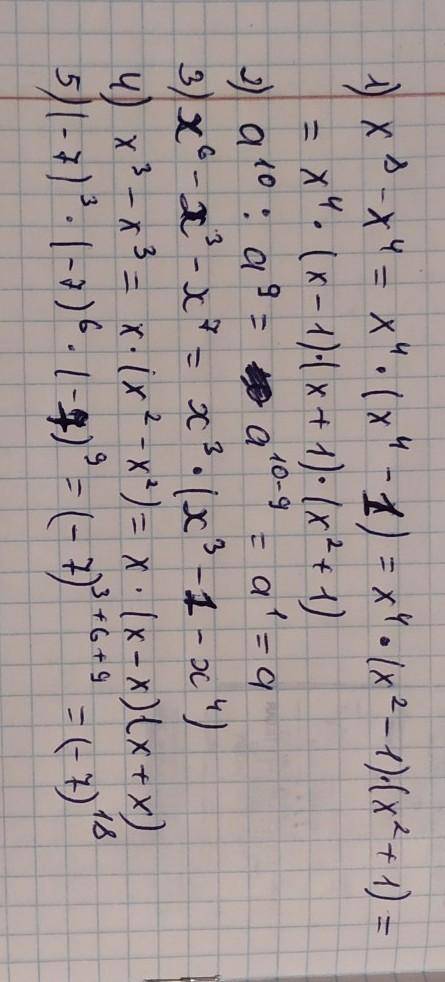 1) x⁸ - x⁴ = x⁴ · (x⁴ - 1) = x⁴ · (x² - 1)·(x² + 1) =
= x⁴ · (x - 1)·(x + 1)·(x² + 1)
2) a¹⁰ : a⁹ = a¹⁰⁻⁹ = a¹ = a
3) x⁶ - x³ - x⁷ = x³ · (x³ - 1 - x⁴)
4) x³ - x³ = x·(x² - x²) = x · (x - x)(x + x)
5) (-7)³ · (-7)⁶ · (-7)⁹ = (-7)³⁺⁶⁺⁹ = (-7)¹⁸